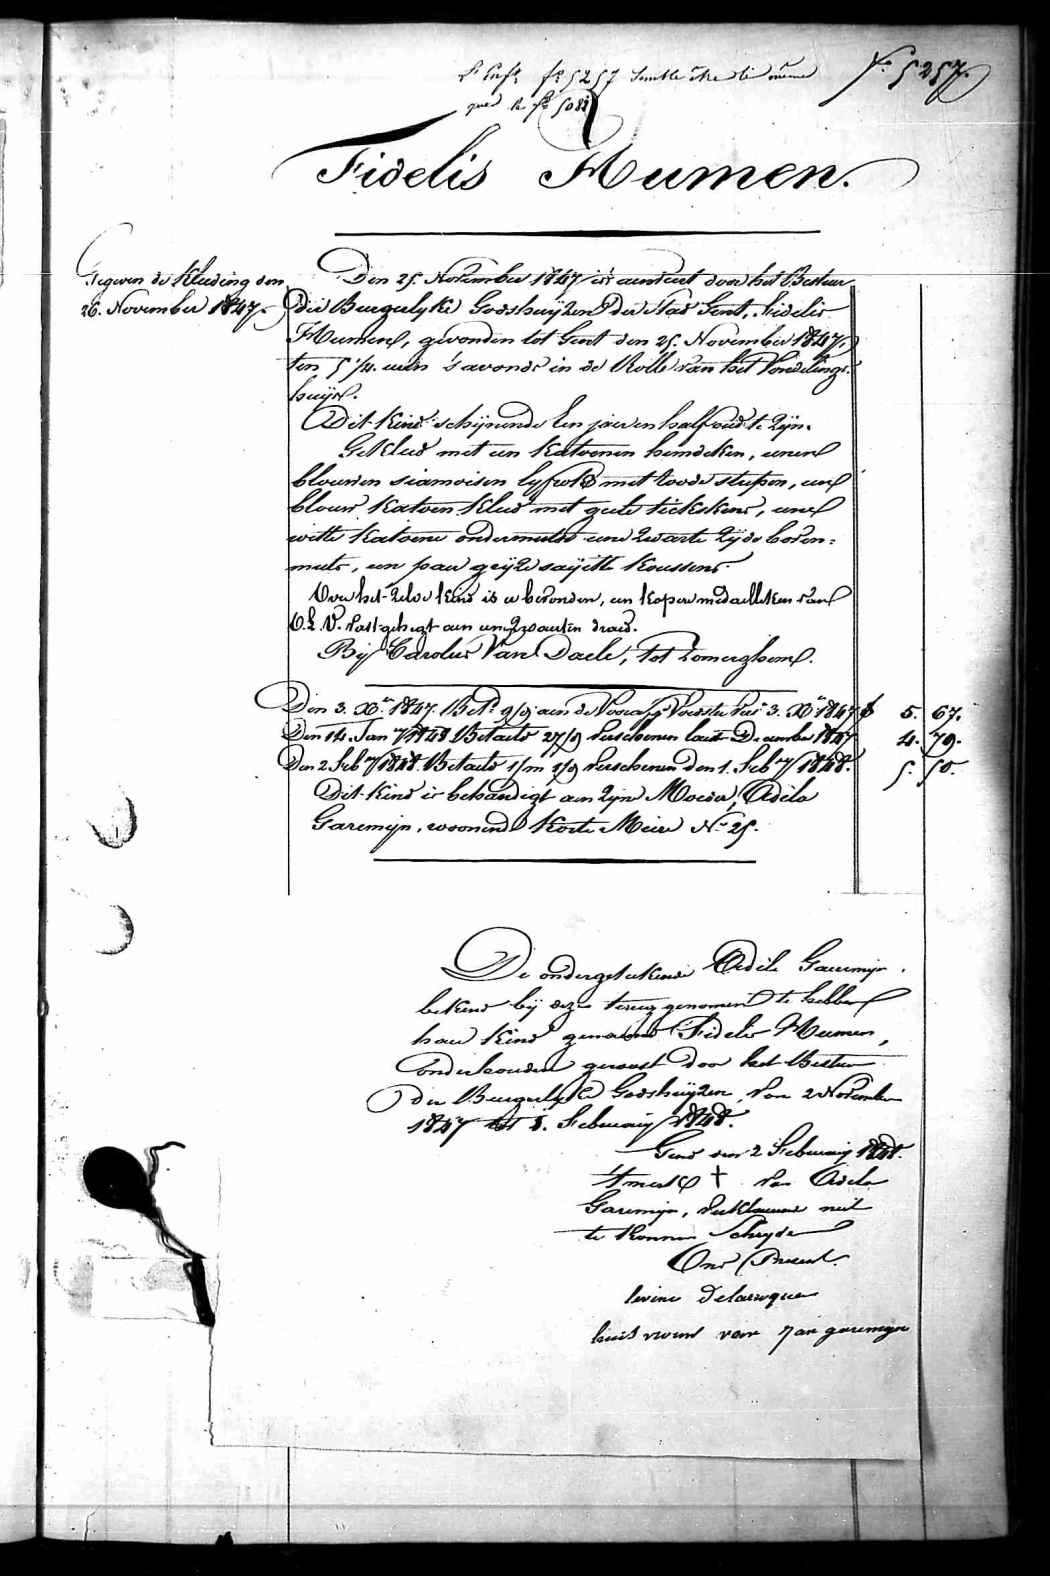 L'enft fo 5257 semble être le même
que le fo 5088
Fo 5257.
Fidelis Humen.
Gegeven de Kleeding den
26. November 1847.
Den 25. November 1847 is aenveert door het Bestuer
der Burgerlyke Godshuyzen der Stad Gent, Fidelis
Humen, gevonden tot Gent den 25. November 1847,
ten 5 1/4. uren 's avonds in de Rolle van het Vondelings-
huys.
Dit Kind schynende Een jaer en half oud te Zyn.
Gekleed met een Katoenen hemdeken, eenen
blauwen siamoisen lyfrok met roode streepen, een
blauw Katoen Kleed met geele tickskens, eene
witte Katoene ondermuts eene Zwarte Zyde boven=
muts, een paer gryze sayette Koussens.
Over het Zelve Kind is er bevonden, een kopere medaelleken van
O.L.V. vastgehegt aen eenen Zwarten draed.
By Carolus Van Daele, tot Zomerghem.
Den 3. Xber 1847. Betd 9/9 aen de Voorafgt Voedster vers 3. Xber 1847 f 5. 67.
Den 14. Jan.y 1848 Betaeld 27/9 verschenen laest December 1847 4. 79.
Den 2. Feb.y 1848. Betaeld 1/m 1/9 verschenen den 1. Feb.y 1848. 5. 50.
Dit Kind is behandigt aen Zyne Moeder, Adela
Garemyn, woonende Korte Meire No 25.
De ondergetekende Adele Garemyn
bekend by deze terug genomen te hebben
haer Kind genaemd Fidelis Humen,
onderhouden geweest door het Bestuer
der Burgerlyke Godshuyzen van 2 November
1847 tot 1. February 1848.
Gend den 2 February 1848.
't merk + van Adela
Garemyn, verklaerende niet
te konnen Schryven
Ons Present.
levine Delaruque
huis vrouw van Jan garemyn